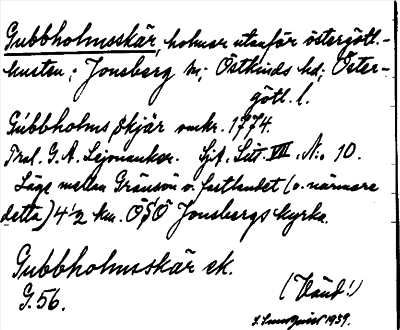 Gubbholmsskär, holmar utanför östergötl.-
kusten, Jonsberg sn, Östkinds hd, Öster-
götl. l.
Gubbholms Skjär omkr. 1774.
Tral. G. A. Lejonanckar. Sjöf. Litt. VII, No 10.
Läge mellan Gränsön o. fastlandet (o. närmare
detta) 4 1/2 km. ÖSÖ Jonsbergs kyrka.
Gubbholmsskär ek.
G. 56.
(Vänd!)
1939.